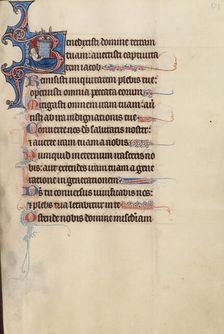 Benedixisti domine terram
tuam: auertisti captiuita
tem iacob.
Remisisti iniquitatem plebis tue:
operuisti omnia peccata eorum.
Mitigasti omnem iram tuam: a
uertisti ab ira indignationis tue.
Conuerte nos ds salutaris noster:
et auerte iram tuam a nobis.
Numquid in eternum irasceris no
bis: aut extendes iram tuam a gene
ratione in generationem.
Ds tu conuersus uiuificabis nos:
et plebs tua letabitur in te.
Ostende nobis domine misediam